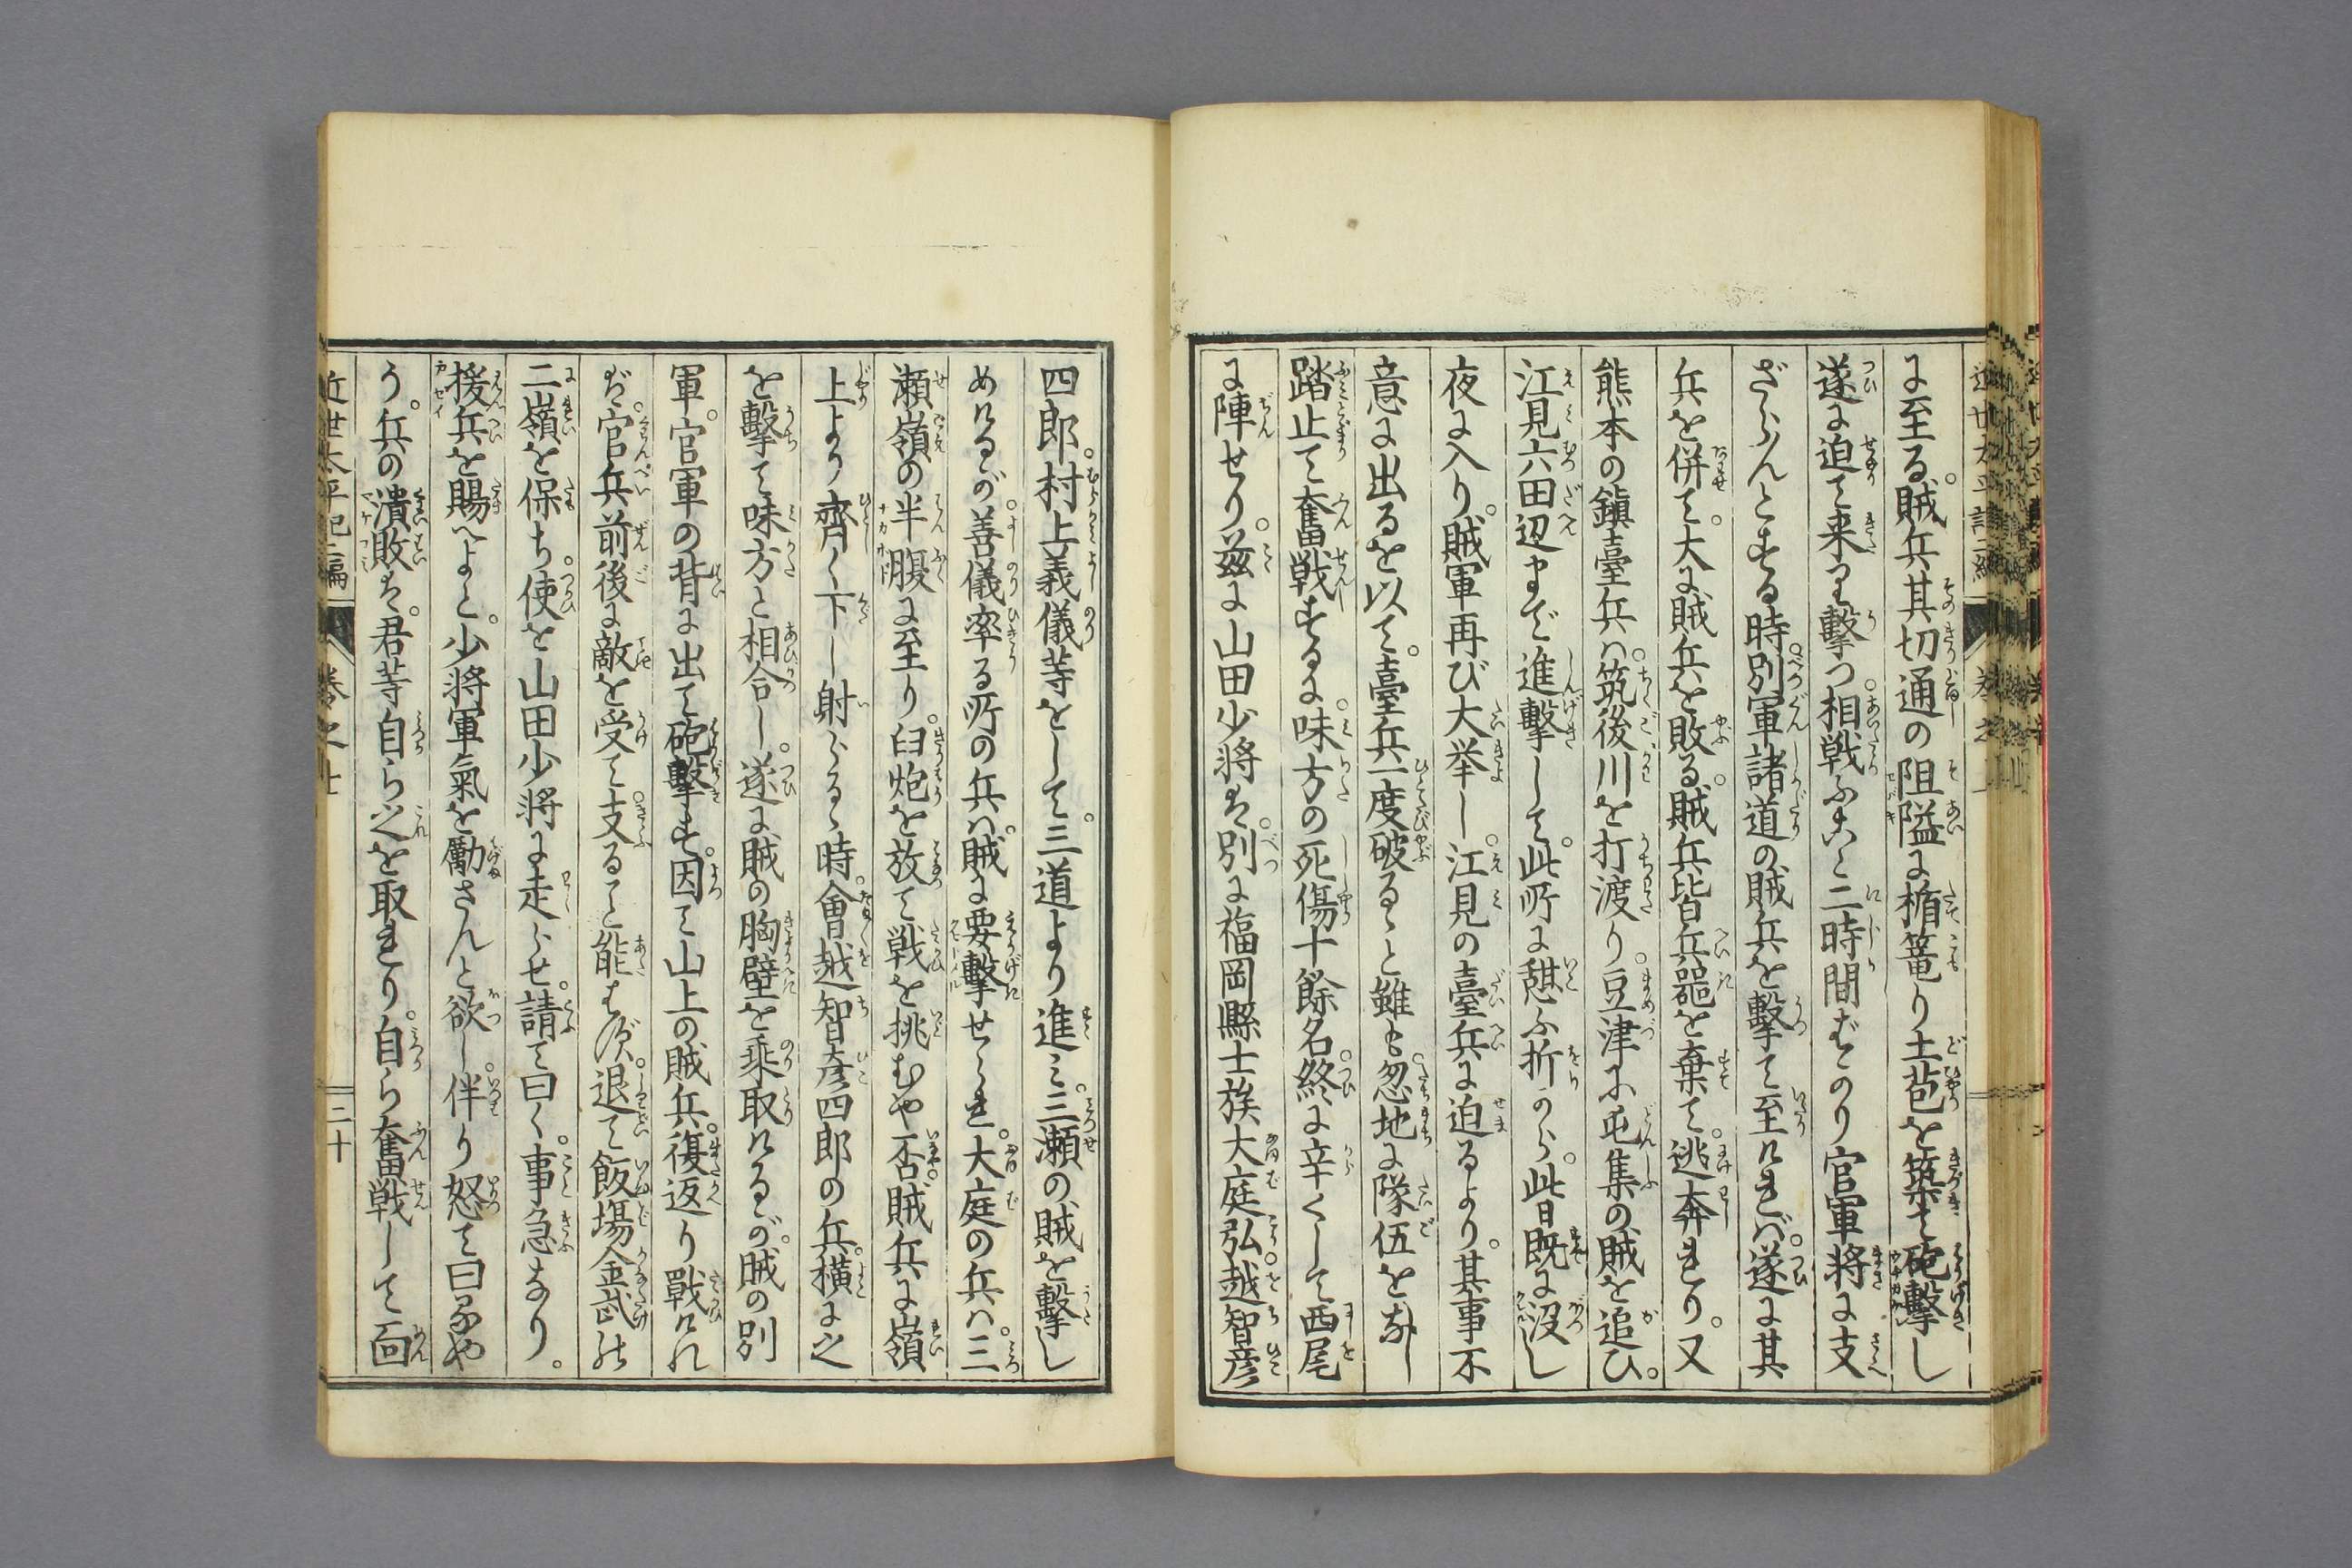 に至る。賊兵其切通の阻隘に楯篭り土苞を築て砲撃し
遂に迫て来り撃つ。相戦ふこと二時間ばかり官軍将に支
ざらんとする時。別軍諸道の賊兵を撃て至ければ。遂に其
兵を併て。大に賊兵を敗る。賊兵皆兵噐を棄て。逃奔せり。又
熊本の鎮臺兵ハ。筑後川を打渡り。豆津に屯集の賊を追ひ。
江見六田辺まで進撃して。此所に憩ふ折から。此日既に没し
夜に入り。賊軍再び大挙し。江見の臺兵に迫るより。其事不
意に出るを以て。臺兵一度破るゝと雖も。忽地に隊伍を為し
踏止て奮戦するに。味方の死傷十餘名。終に辛くして西尾
に陣せり。茲に山田少将は。別に福岡縣士族大庭弘。越智彦
四郎。村上義儀等をして。三道より進み。三瀬の賊を撃し
めけるが。善儀率る所の兵ハ。賊に要撃せられ。大庭の兵ハ。三
瀬嶺の半腹に至り。臼炮を放て戦を挑むや否。賊兵に嶺
上より齊く下し射らるゝ時。會越智彦四郎の兵。横に之
を撃て味方と相合し。遂に賊の胸壁を乗取けるが。賊の別
軍。官軍の背に出て砲撃す。因て山上の賊兵。復返り戦けれ
ば。官兵前後に敵を受て。支ること能はず。退て飯塲金武の
二嶺を保ち。使を山田少将に走らせ。請て曰く。事急なり。
援兵を賜へよと。少将軍氣を勵さんと欲し。佯り怒て曰るや
う。兵の潰敗は。君等自ら之を取れり。自ら奮戦して面
近世太平記二編
巻之七
二十